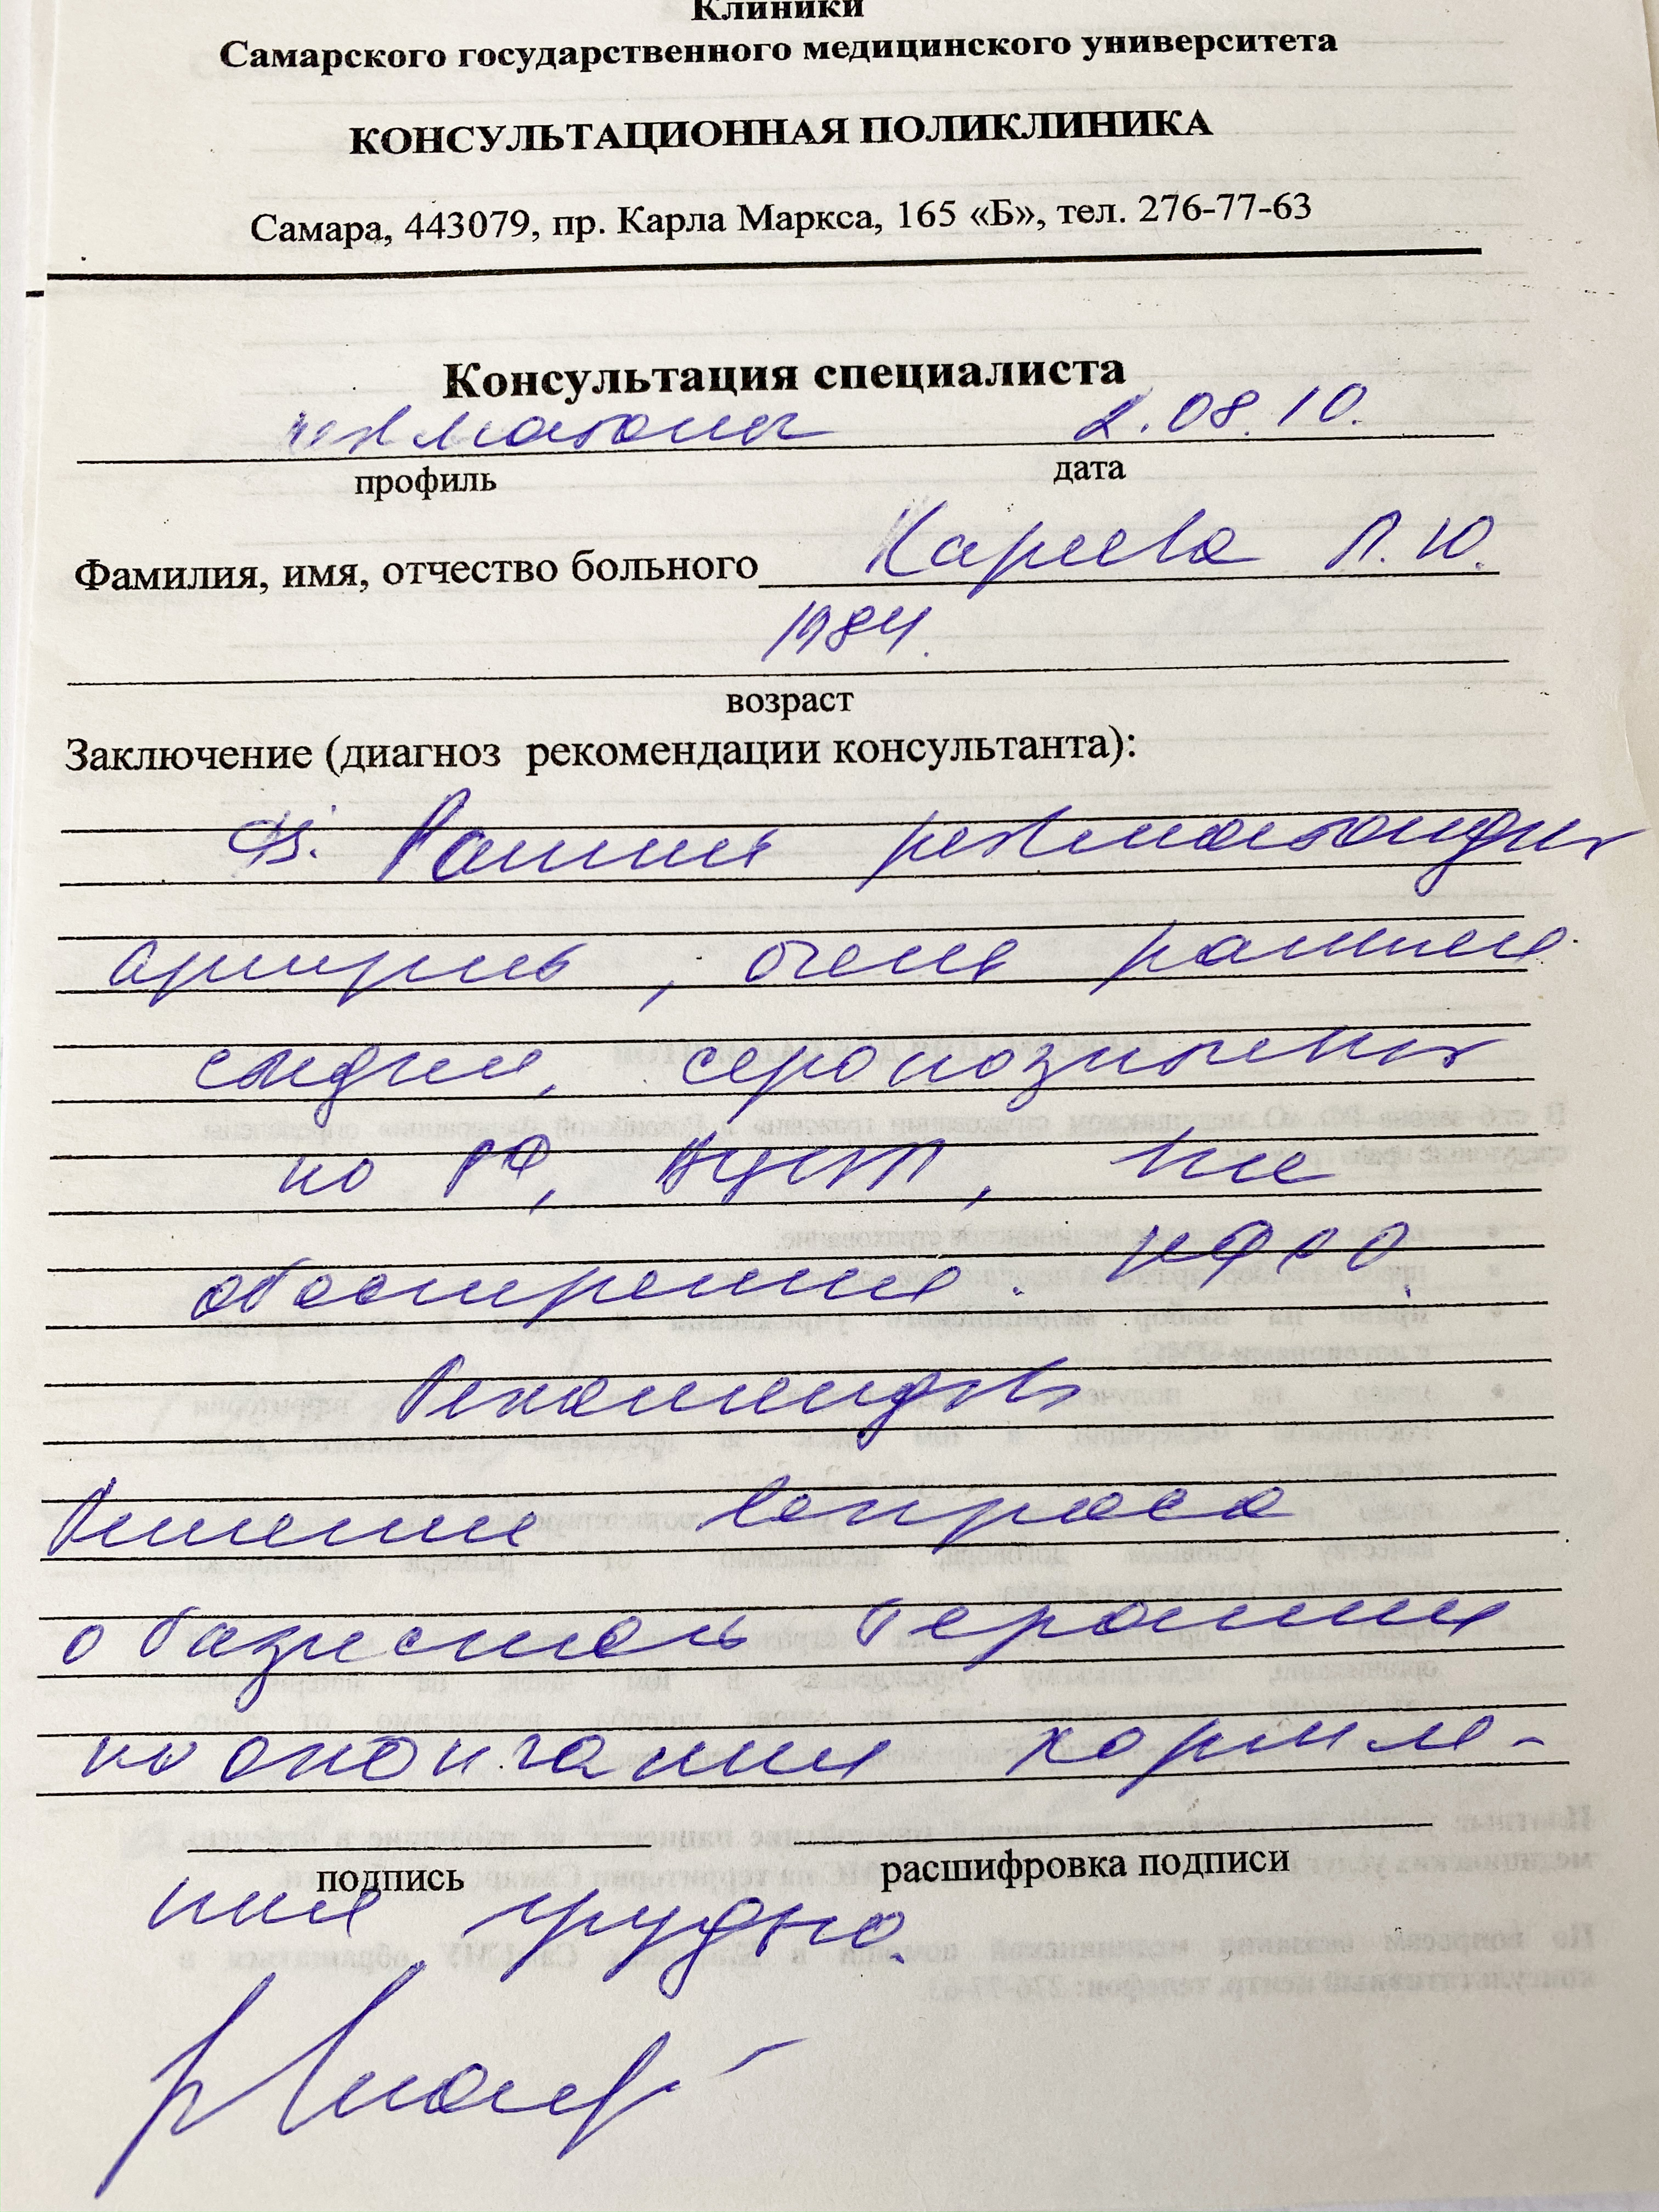 Клиники
Самарского государственного медицинского университета
КОНСУЛЬТАЦИОННАЯ ПОЛИКЛИНИКА
Самара, 443079, пр. Карла Маркса, 165 «Б», тел. 276-77-63
Консультация специалиста
2.08.10.
профиль дата
Фамилия, имя, отчество больного Карева Л.Ю.
1984.
возраст
Заключение (диагноз рекомендации консультанта):
Ds. Ранний ревматоидн
артрит, очень ранняя
стадия, серопозитивн
по РФ, АЦЦП, вне
обострения. НФС 0.
Рекомендов
Решение вопроса
о базисной терапии
по окончании кормле-
подпись расшифровка подписи
ния грудью.